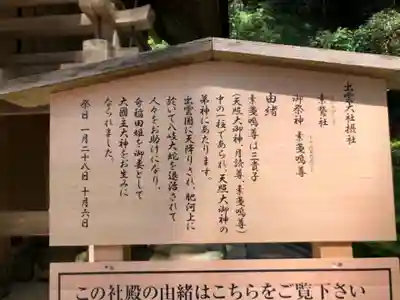 出雲大社摂社
素鵞社
御祭神 素戔嗚尊
由緒
素戔嗚尊は三貴子
(天照大御神、月読尊、素戔嗚尊)
中の一柱であられ、天照大御神の
弟神にあたります。
出雲國に天降りされ、肥河上に
於いて八岐大蛇を退治されて
人々をお助けになり、
奇稲田姫を御妻として
大國主大神をお生みに
なられました。
祭日 一月二十八日 十月六日
この社殿の由緒はこちらをご覧下さい